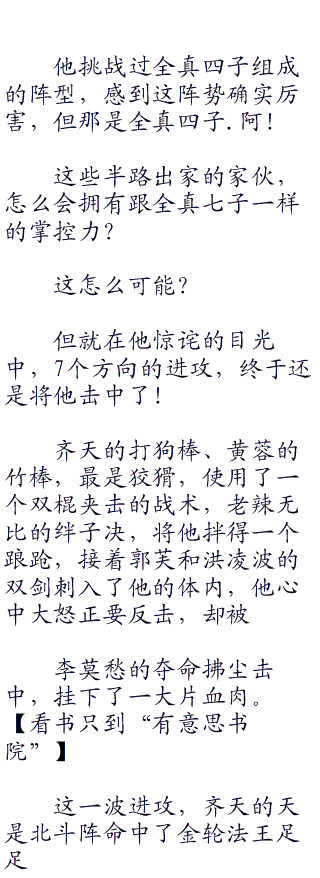 他挑战过全真四子组成
的阵型，感到这阵势确实厉
害，但那是全真四子.阿！
这些半路出家的家伙，
怎么会拥有跟全真七子一样
的掌控力？
这怎么可能？
但就在他惊诧的目光
中，7个方向的进攻，终于还
是将他击中了！
齐天的打狗棒、黄蓉的
竹棒，最是狡猾，使用了一
个双棍夹击的战术，老辣无
比的绊子决，将他拌得一个
踉跄，接着郭芙和洪凌波的
双剑刺入了他的体内，他心
中大怒正要反击，却被
李莫愁的夺命拂尘击
中，挂下了一大片血肉。
【看书只到“有意思书
院”】
这一波进攻，齐天的天
是北斗阵命中了金轮法王足
足